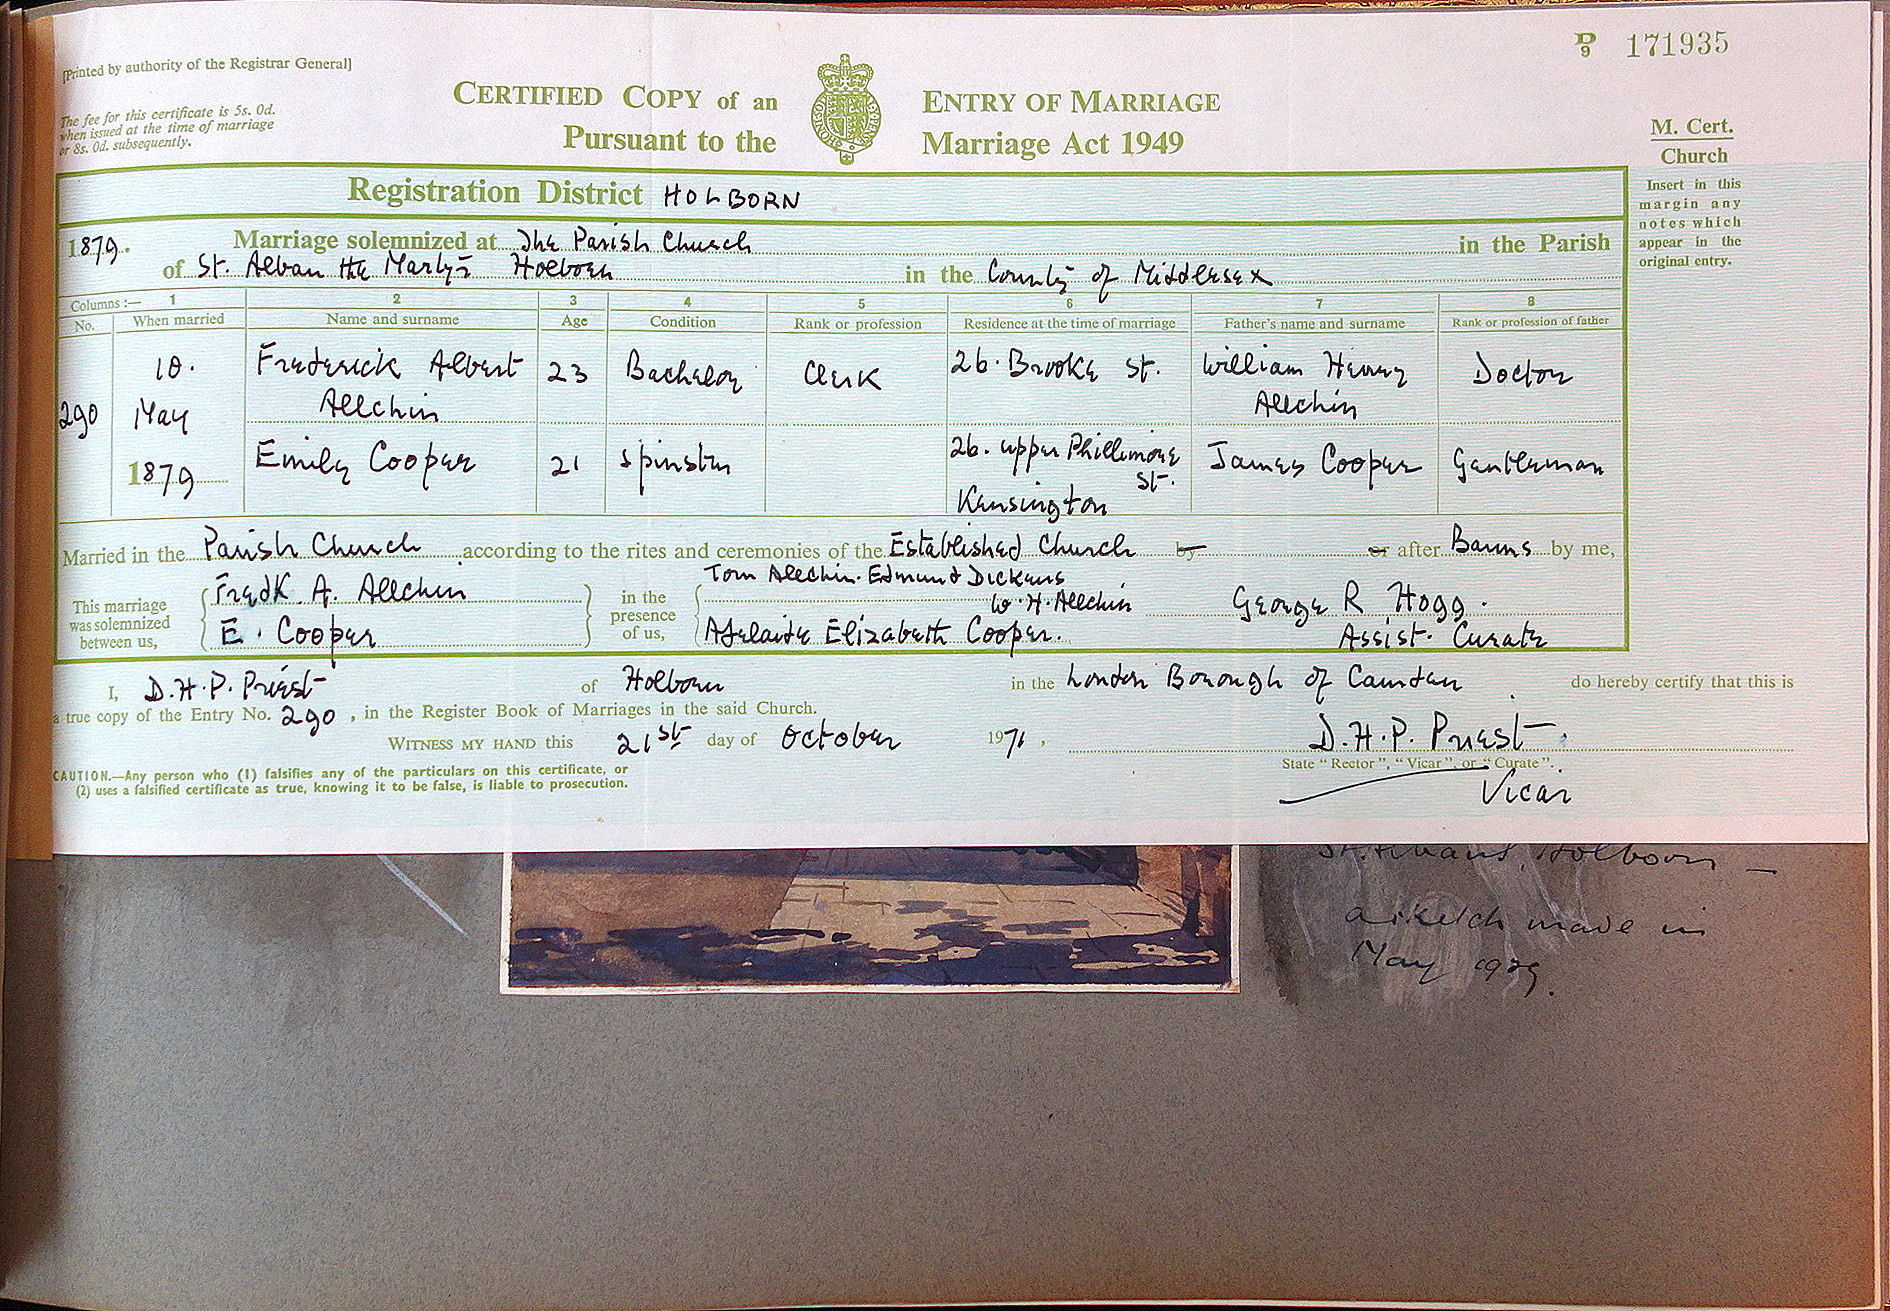 [Printed by authority of the Registrar General]
P
9 171935
The fee for this certificate is 5s. 0d.
when issued at the time of marriage
or 8s. 0d. subsequently.
CERTIFIED COPY of an ENTRY OF MARRIAGE
Pursuant to the Marriage Act 1949
M. Cert.
Church
Insert in this
margin any
notes which
appear in the
original entry.
Registration District HOLBORN
1879. Marriage solemnized at The Parish Church in the Parish
of St. Alban the Martyr Holborn in the County of Middlesex
Columns :— 1 2 3 4 5 6 7 8
No. When married Name and surname Age Condition Rank or profession Residence at the time of marriage Father's name and surname Rank or profession of father
290 10. May 1879
Frederick Albert Allchin 23 Bachelor Clerk 26. Brooke St. William Henry Allchin Doctor
Emily Cooper 21 Spinster 26. Upper Phillimore St. Kensington James Cooper Gentleman
Married in the Parish Church according to the rites and ceremonies of the Established Church by or after Banns by me,
This marriage was solemnized between us,
Fredk. A. Allchin
E. Cooper
in the presence of us,
Tom Allchin. Edmund Dickens
W. H. Allchin
Adelaide Elizabeth Cooper.
George R Hogg.
Assist. Curate
I, D.H.P. Priest of Holborn in the London Borough of Camden do hereby certify that this is
a true copy of the Entry No. 290, in the Register Book of Marriages in the said Church.
WITNESS MY HAND this 21st day of October 1971,
D.H.P. Priest.
State "Rector", "Vicar", or "Curate".
Vicar
CAUTION.—Any person who (1) falsifies any of the particulars on this certificate, or
(2) uses a falsified certificate as true, knowing it to be false, is liable to prosecution.
St. Albans, Holborn —
a sketch made in
May